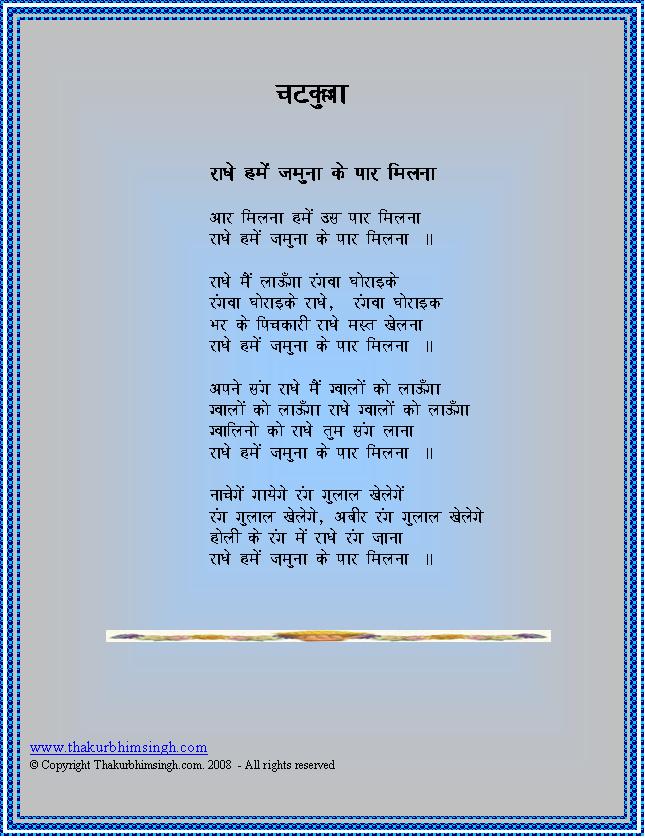 चटकुल्ला
राधे हमें जमुना के पार मिलना
आर मिलना हमें उस पार मिलना
राधे हमें जमुना के पार मिलना ॥
राधे मैं लाऊँगा रंगवा घोराइके
रंगवा घोराइके राधे, रंगवा घोराइक
भर के पिचकारी राधे मस्त खेलना
राधे हमें जमुना के पार मिलना ॥
अपने संग राधे मैं ग्वालों को लाऊँगा
ग्वालों को लाऊँगा राधे ग्वालों को लाऊँगा
ग्वालिनो को राधे तुम संग लाना
राधे हमें जमुना के पार मिलना ॥
नाचेगें गायेगे रंग गुलाल खेलेगें
रंग गुलाल खेलेगे, अबीर रंग गुलाल खेलेगे
होली के रंग में राधे रंग जा़ना
राधे हमें जमुना के पार मिलना ॥
www.thakurbhimsingh.com
© Copyright Thakurbhimsingh.com. 2008 - All rights reserved